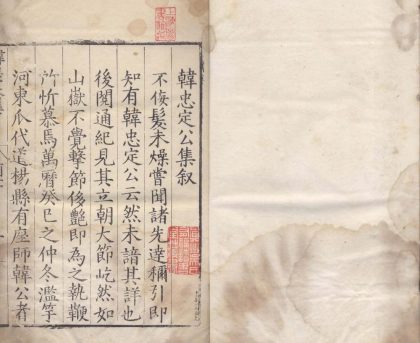 韓忠定公集叙
不佞髮未燥嘗聞諸先達穪引即
知有韓忠定公云然未諳其詳也
後閱通紀見其立朝大節屹然如
山嶽不覺擊節後艷即為之執鞭
所忻慕焉萬曆癸巳之仲冬濫竽
河東瓜代道楊縣有座師韓公者